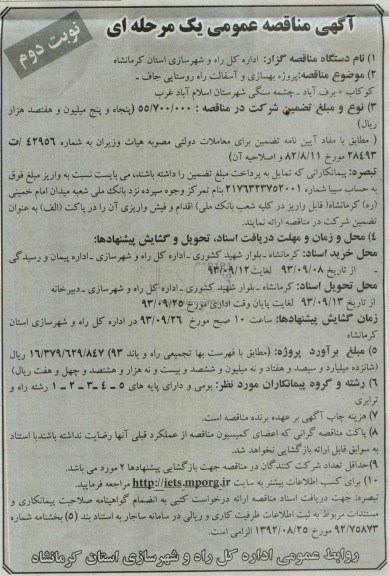 آگهی مناقصه عمومی یک مرحله ای
نوبت دوم
۱) نام دستگاه مناقصه گزار: اداره کل راه و شهرسازی استان کرمانشاه
۲) موضوع مناقصه:پروژه بهسازی و آسفالت راه روستایی جاف ـ
کوکاب ـ برف آباد ـ چشمه سنگی شهرستان اسلام آباد غرب
۳) نوع و مبلغ تضمین شرکت در مناقصه : ۵۵/۷۰۰/۰۰۰ (پنجاه و پنج میلیون و هفتصد هزار
ریال)
( مطابق با مفاد آیین نامه تضمین برای معاملات دولتی مصوبه هیات وزیران به شماره ۴۲۹۵۶ /ت
۲۸۴۹۳ مورخ ۸۲/۸/۱۱ و اصلاحیه آن)
تبصره: پیمانکارانی که تمایل به پرداخت مبلغ تضمین را داشته باشند، می بایست نسبت به واریز مبلغ فوق
به حساب سیبا شماره ۲۱۷۶۲۳۷۵۲۰۰۱ بنام تمرکز وجوه سپرده نزد بانک ملی شعبه میدان امام خمینی
(ره) کرمانشاه( قابل واریز در کلیه شعب بانک ملی) اقدام و فیش واریزی آن را در پاکت (الف) به عنوان
تضمین شرکت در مناقصه ارائه نمایند.
۴) محل و زمان و مهلت دریافت اسناد، تحویل و گشایش پیشنهادها:
محل خرید اسناد: کرمانشاه ـ بلوار شهید کشوری ـ اداره کل راه و شهرسازی ـ اداره پیمان و رسیدگی
ـ از تاریخ ۹۳/۰۹/۰۸ لغایت ۹۳/۰۹/۱۲
محل تحویل اسناد: کرمانشاه ـ بلوار شهید کشوری ـ اداره کل راه و شهرسازی ـ دبیرخانه
از تاریخ ۹۳/۰۹/۱۳ لغایت پایان وقت اداری مورخ ۹۳/۰۹/۲۵
زمان گشایش پیشنهادها: ساعت ۱۰ صبح مورخ ۹۳/۰۹/۲۶ در اداره کل راه و شهرسازی استان
کرمانشاه
۵) مبلغ برآورد پروژه: (مطابق با فهرست بها تجمیعی راه و باند ۹۳) ۱۶/۳۷۹/۶۲۹/۸۴۷ ریال
(شانزده میلیارد و سیصد و هفتاد و نه میلیون و ششصد و بیست و نه هزار و هشتصد و چهل و هفت ریال)
۶) رشته و گروه پیمانکاران مورد نظر: بومی و دارای پایه های ۵ ـ ۴ ـ ۳ ـ ۲ ـ ۱ رشته راه و
ترابری
۷) هزینه چاپ آگهی بر عهده برنده مناقصه است.
۸) پاکت مناقصه گرانی که اعضای کمیسیون مناقصه از عملکرد قبلی آنها رضایت نداشته باشند،با استناد
به سوابق قابل ارائه بازگشایی نخواهد شد.
۹)حداقل تعداد شرکت کنندگان در مناقصه جهت بازگشایی پیشنهادها ۲ مورد می باشد.
۱۰) برای کسب اطلاعات بیشتر به سایت http://iets.mporg.ir مراجعه فرمایید.
تبصره: جهت دریافت اسناد مناقصه ارائه درخواست کتبی به انضمام گواهینامه صلاحیت پیمانکاری و
مستندات مربوط به ثبت اطلاعات ظرفیت کاری و ریالی در سامانه ساجار به استناد بند (۵) بخشنامه شماره
۹۲/۷۵۸۷۳ مورخ ۱۳۹۲/۰۸/۲۵ الزامی است.
روابط عمومی اداره کل راه و شهرسازی استان کرمانشاه